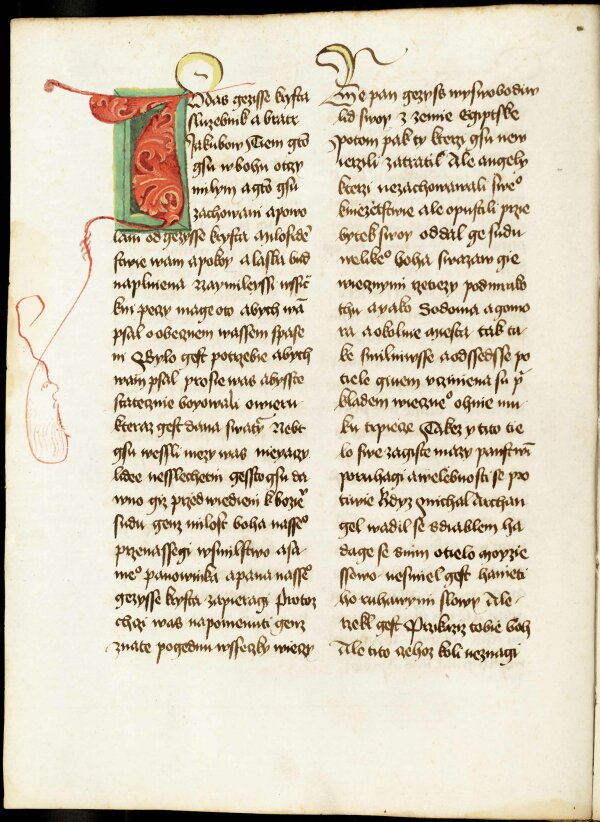 Judas gezisse krysta
sluzebnik a bratr
Jakubow Tiem gto
gsu w bohu otczy
milym a gto gsu
zachowani a powo
lani od gezysse krysta Milosrden
stwie wam a pokoy a laska bud
naplniena Naymileyssi wssic
kni pecz mage oto abych wam
psal o obecznem wassem spase
ni Bylo gest potrzebie abych
wam psal prosie was abysste
statecznie boyowali o wieru
kteraz gest dana swatym Nebt
gsu wessli niczy was niepaczy
lidee nesslechetni gessto gsu da
wno giz przedwiedieni k bozie
sudu genz milost boha nasse
przenassegi w smilstwo a sa
me panownika a pana nasse
gezysse krysta zapieragi Protoz
chczi was napomenuti genz
znate gednu wsseczky wieczy
Zie pan gezyss wyswobodiw
lid swoy z zemie Egiptske
potom pak ty kterzy gsu new
ierzili zatratil Ale angely
kterzi nezachowawali swe
kniezetstwie ale opustili prze
bytek swoy oddal ge sudu
welike boha swazaw gie
wiecznymi rzetiezy pod mrako
thu a yako Sodoma a gomo
ra a okolnie miesta tak ta
ke smilniwsse a odssedsse po
tiele ginem vcziniena su przi
kladem wieczne ohnie mu
ku trpiecze Takez y tito tie
lo swe zagiste mazy panstwim
poruhagi a welebnosti se pro
tiwie Kdyz michal Archan
gel wadil se s diablem ha
dage se s nim o tielo moyzie
ssowo nesmiel gest hanieti
ho ruhawymi slowy Ale
rzekl gest Przikaz tobie boh
Ale tito czehoz koli neznagi